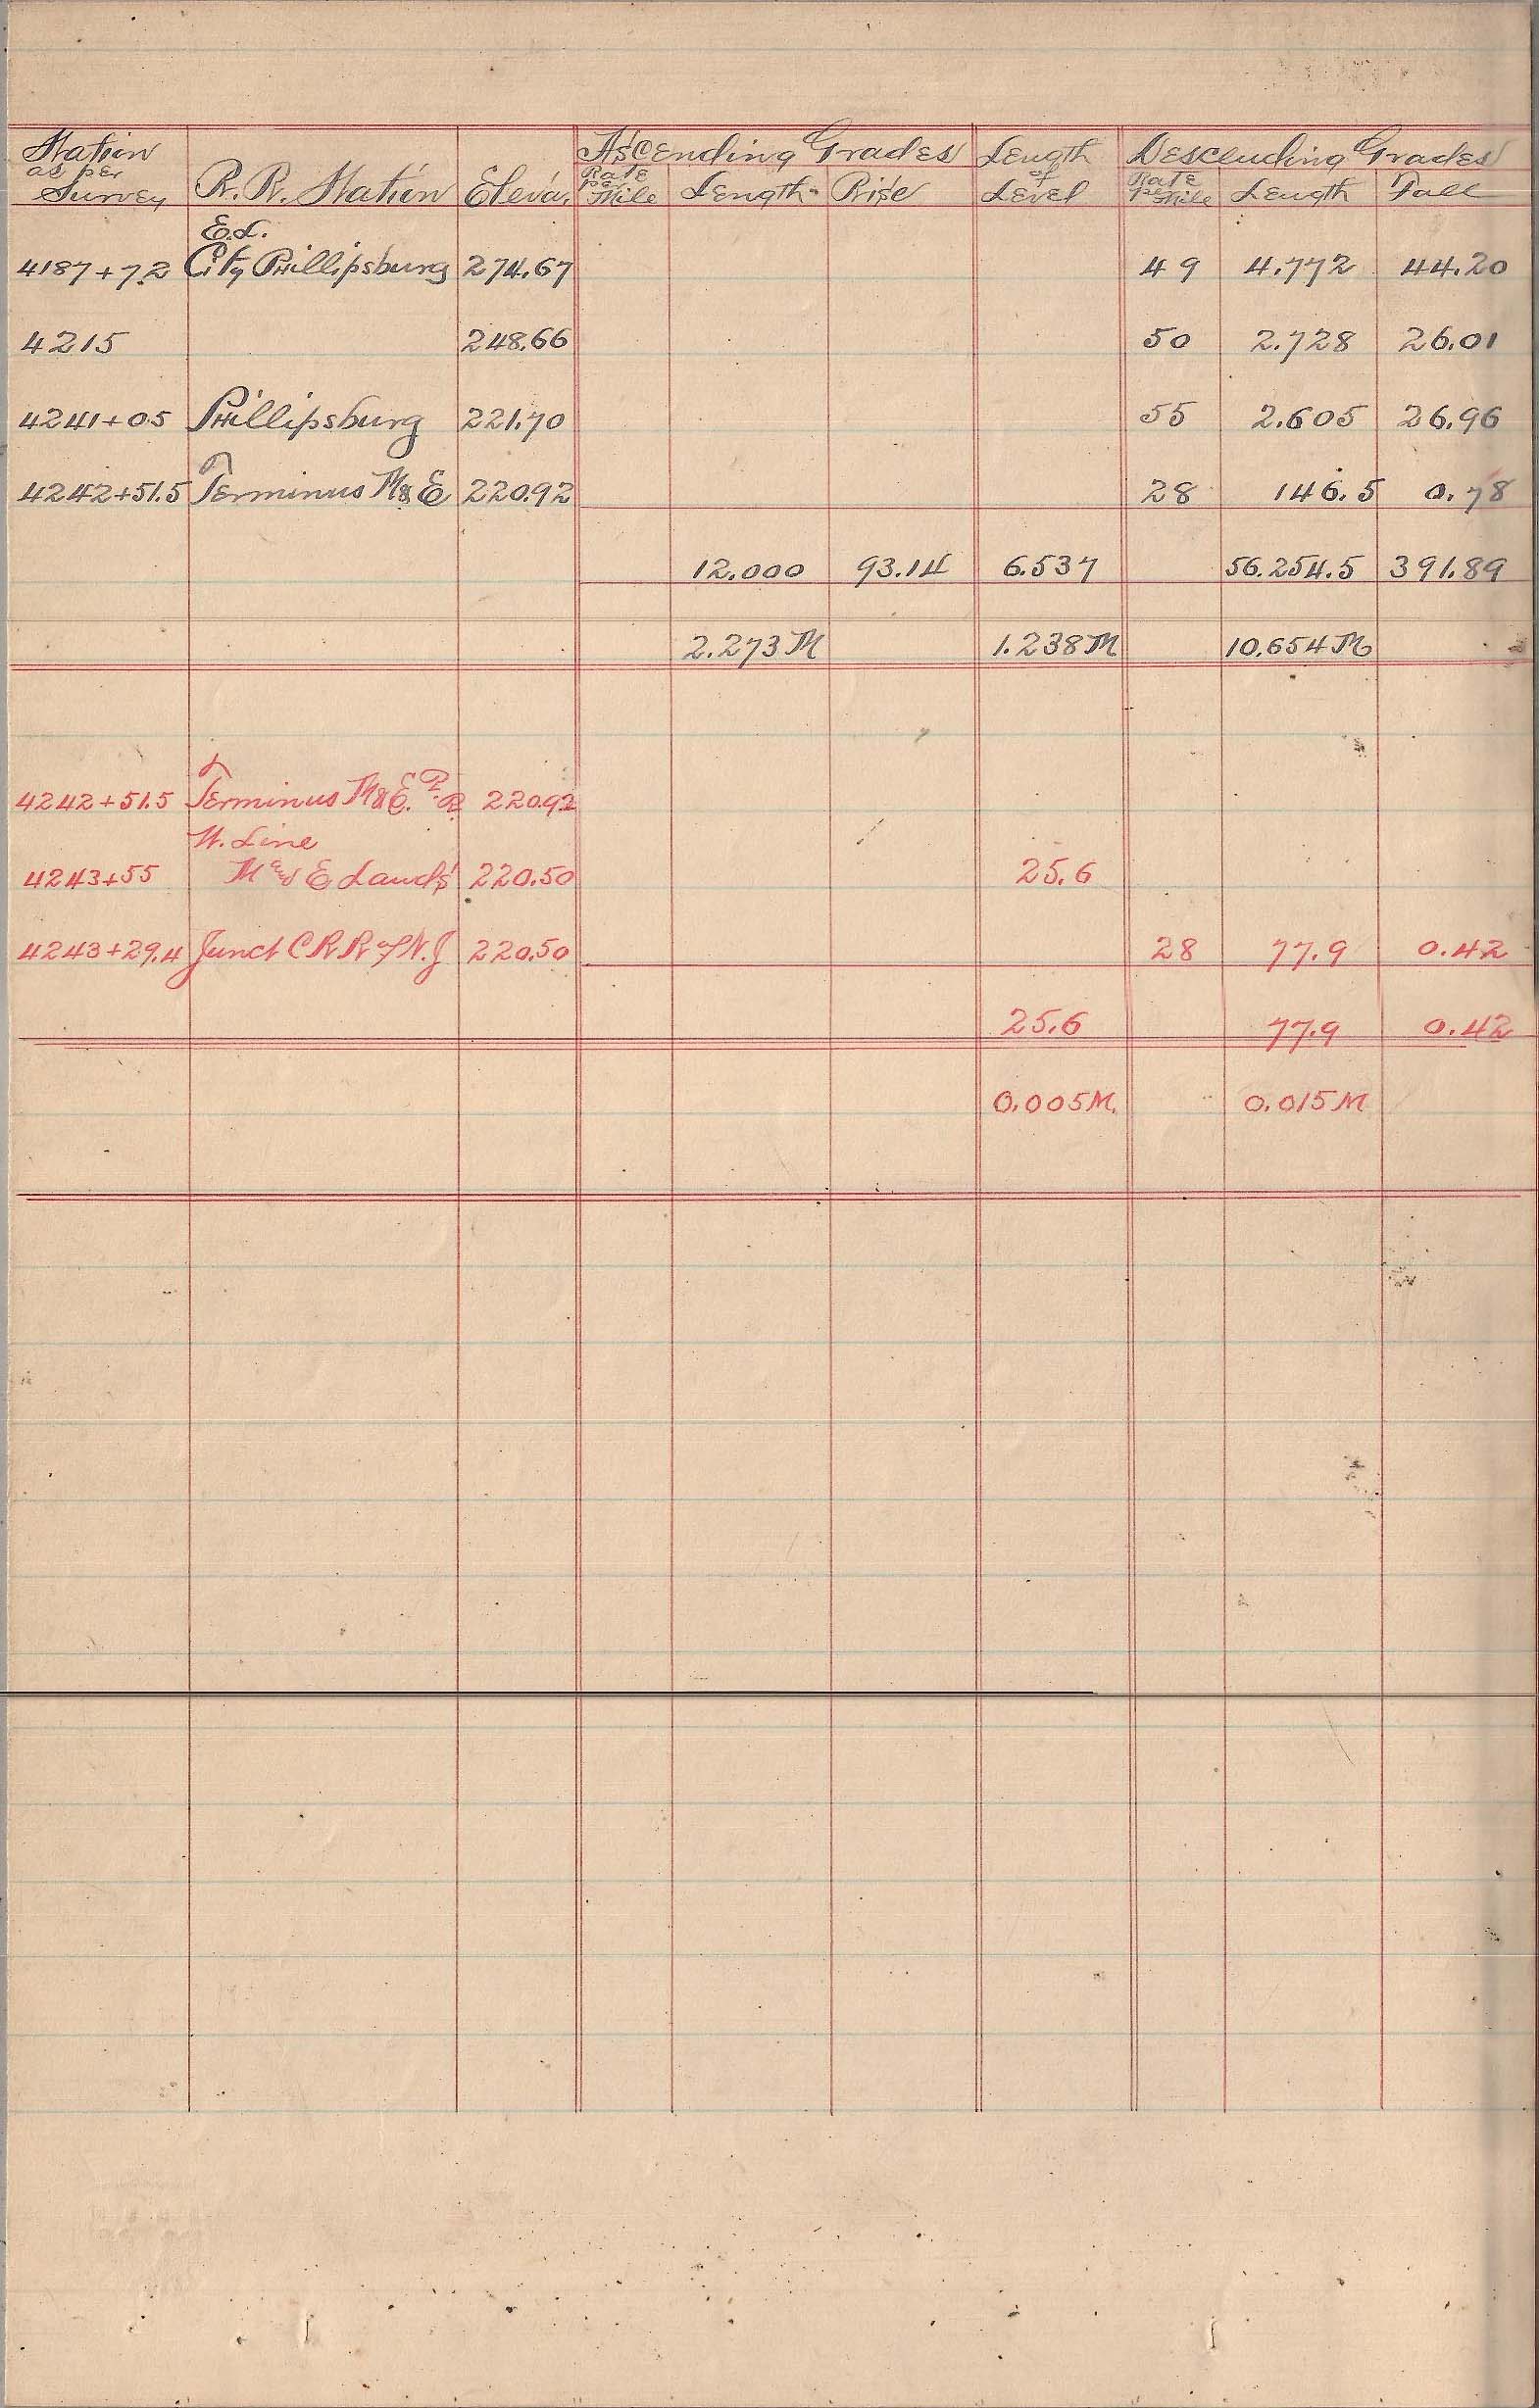 Station as per Survey | R. R. Station | Eleva. | Ascending Grades | Length of Level | Descending Grades
Rate per Mile | Length | Rise | Rate per Mile | Length | Fall
E.L.
4187+72 City Phillipsburg 274.67 49 4.772 44.20
4215 248.66 50 2.728 26.01
4241+05 Phillipsburg 221.70 55 2.605 26.96
4242+51.5 Terminus M & E 220.92 28 146.5 0.78
12.000 93.14 6.537 56.254.5 391.89
2.273 M 1.238 M 10.654 M
4242+51.5 Terminus M & E. R. R. 220.92
W. Line
4243+55 M and E Lands 220.50 25.6
4243+29.4 Junct C R R of N. J 220.50 28 77.9 0.42
25.6 77.9 0.42
0.005 M. 0.015 M